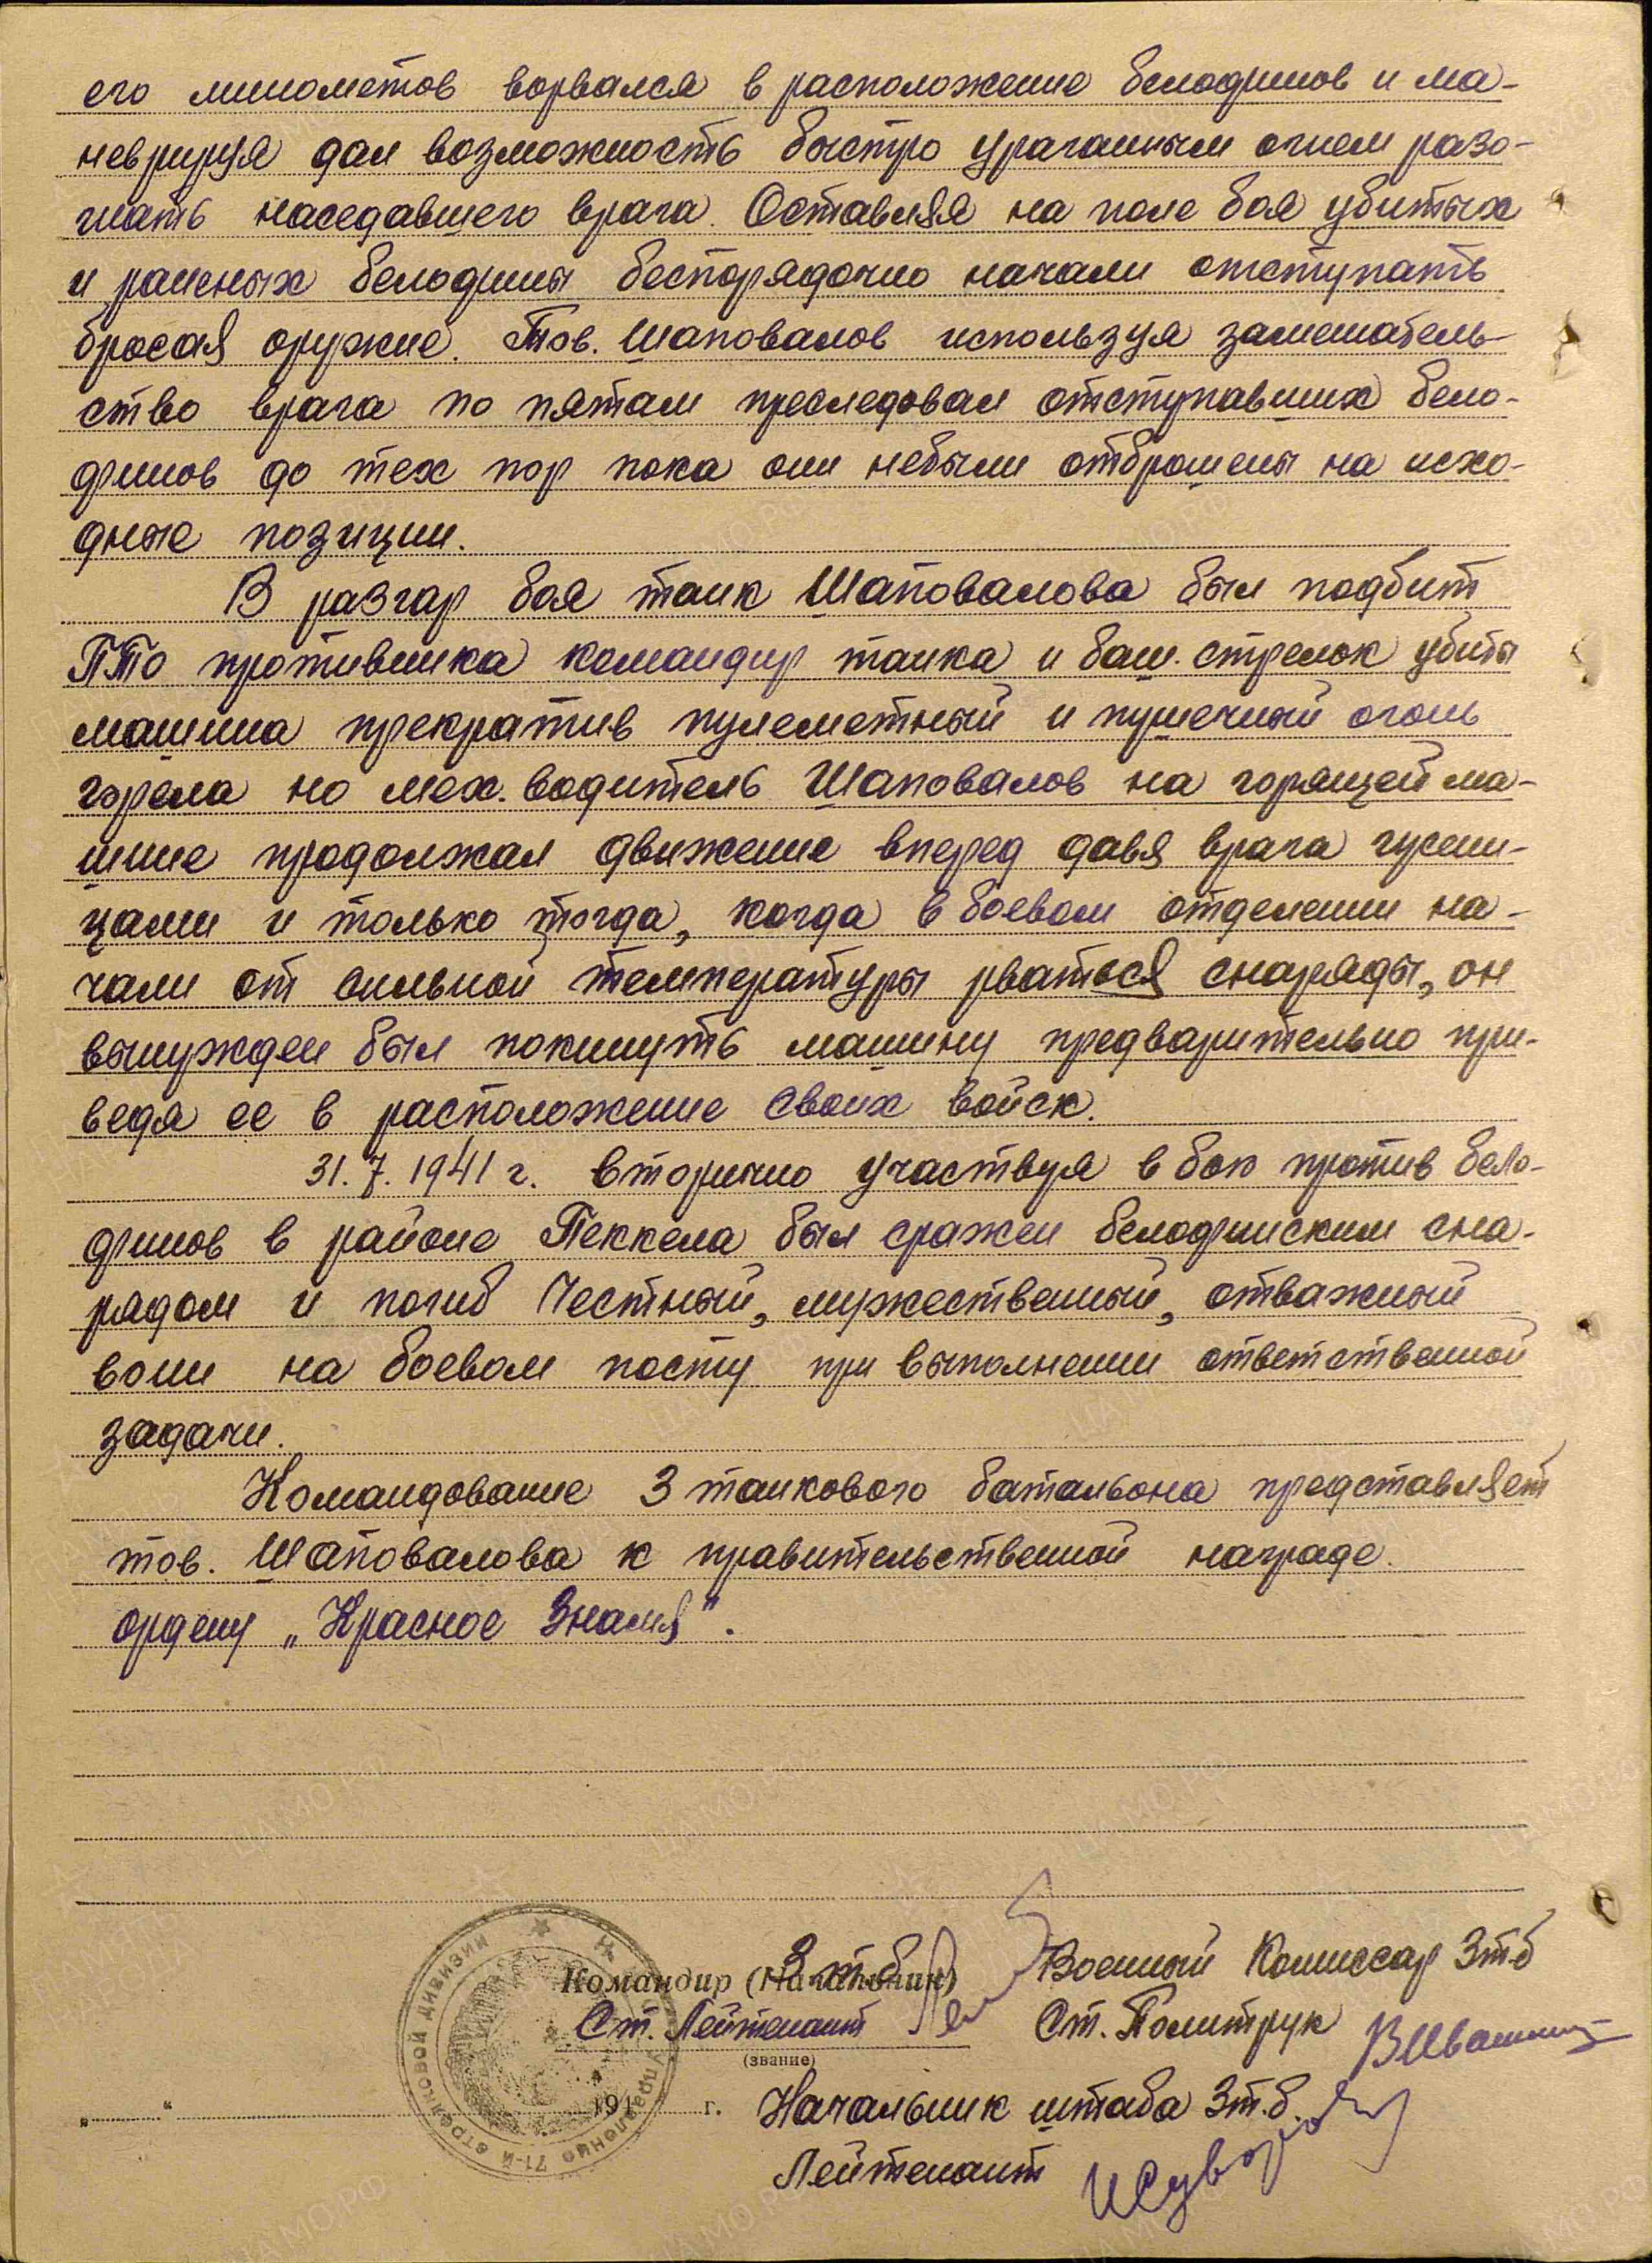 его минометов ворвался в расположение белофинов и ма-
неврируя дал возможность быстро ураганным огнем разо-
гнать наседавшего врага. Оставляя на поле боя убитых
и раненых белофины беспорядочно начали отступать
бросая оружие. Тов. Шаповалов используя замешатель-
ство врага по пятам преследовал отступавших бело-
финов до тех пор пока они небыли отброшены на исхо-
дные позиции.
В разгар боя танк Шаповалова был подбит
ПТО противника командир танка и баш. стрелок убиты
машина прекратив пулеметный и пушечный огонь
горела но мех. водитель Шаповалов на горящей ма-
шине продолжал движение вперед давя врага гусени-
цами и только тогда, когда в боевом отделении на-
чали от сильной температуры рваться снаряды, он
вынужден был покинуть машину предварительно при-
ведя ее в расположение своих войск.
31.7.1941 г. вторично участвуя в бою против бело-
финов в районе Пеккела был сражен белофинским сна-
рядом и погиб Честный, мужественный, отважный
воин на боевом посту при выполнении ответственной
задачи.
Командование 3 танкового батальона представляет
тов. Шаповалова к правительственной награде
ордену „Красное Знамя".
Командир (Начальник) 3 т.б. Военный Комиссар 3тб
Ст. Лейтенант Ст. Политрук
(звание)
„ “ 194 г. Начальник штаба 3т.б.
Лейтенант ИСуворов
Управление 71-й стрелковой дивизии
ЦАМО.РФ